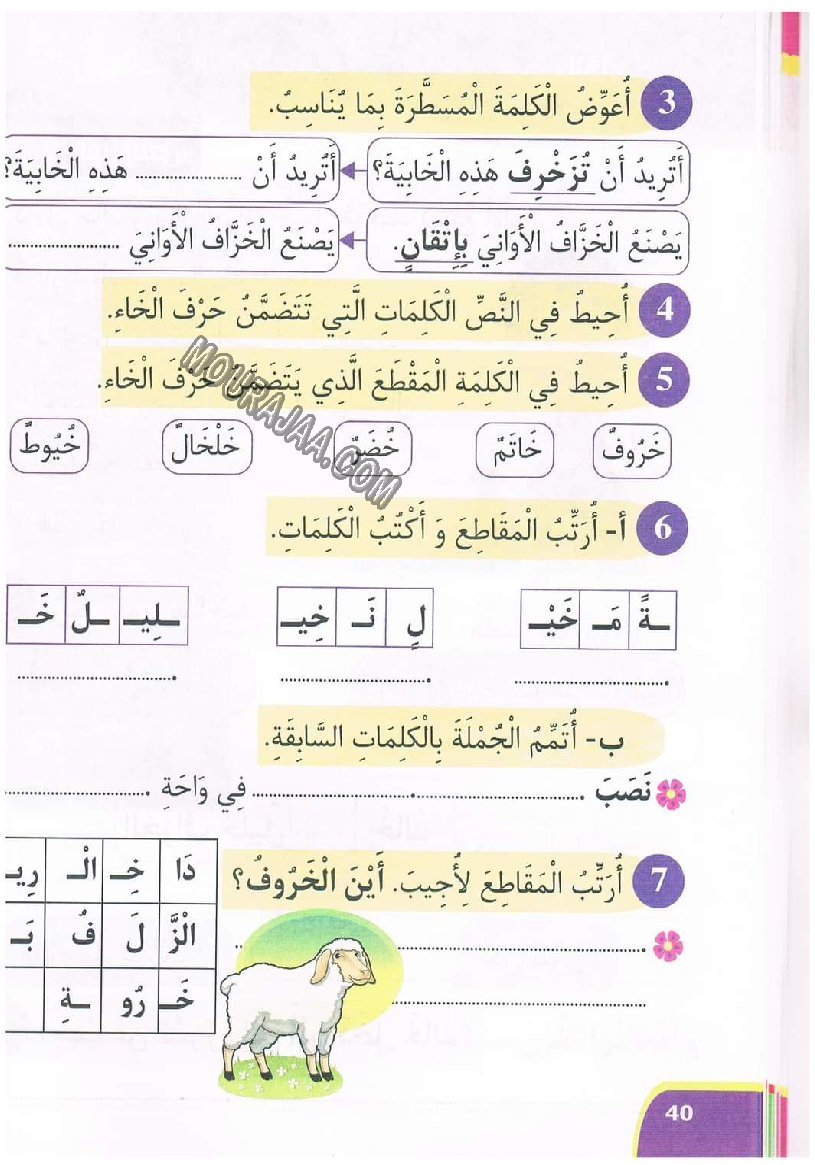 3 أُعَوِّضُ الْكَلِمَةَ الْمُسَطَّرَةَ بِمَا يُنَاسِبُ.
أَتُرِيدُ أَنْ تُزَخْرِفَ هَذِهِ الْخَابِيَةَ؟ أَتُرِيدُ أَنْ ........................ هَذِهِ الْخَابِيَةَ؟
يَصْنَعُ الْخَزَّافُ الْأَوَانِيَ بِإِتْقَانٍ. يَصْنَعُ الْخَزَّافُ الْأَوَانِيَ ........................
4 أُحِيطُ فِي النَّصِّ الْكَلِمَاتِ الَّتِي تَتَضَمَّنُ حَرْفَ الْخَاءِ.
5 أُحِيطُ فِي الْكَلِمَةِ الْمَقْطَعَ الَّذِي يَتَضَمَّنُ حَرْفَ الْخَاءِ.
خَرُوفٌ خَاتَمٌ خُضَرٌ خَلْخَالٌ خُيُوطٌ
MOURAJAA.COM
6 أ- أُرَتِّبُ الْمَقَاطِعَ وَ أَكْتُبُ الْكَلِمَاتِ.
ـةً مَـ خَيْـ لٍ نَـ خِيـ ـلِيـ ـلٌ خَـ
ب- أُتَمِّمُ الْجُمْلَةَ بِالْكَلِمَاتِ السَّابِقَةِ.
نَصَبَ ................................ فِي وَاحَةِ ................................
7 أُرَتِّبُ الْمَقَاطِعَ لِأُجِيبَ. أَيْنَ الْخَرُوفُ؟
دَا خِـ الْـ رِيـ
الزَّ لَ فُ بَـ
خَـ رُو ـةِ
40